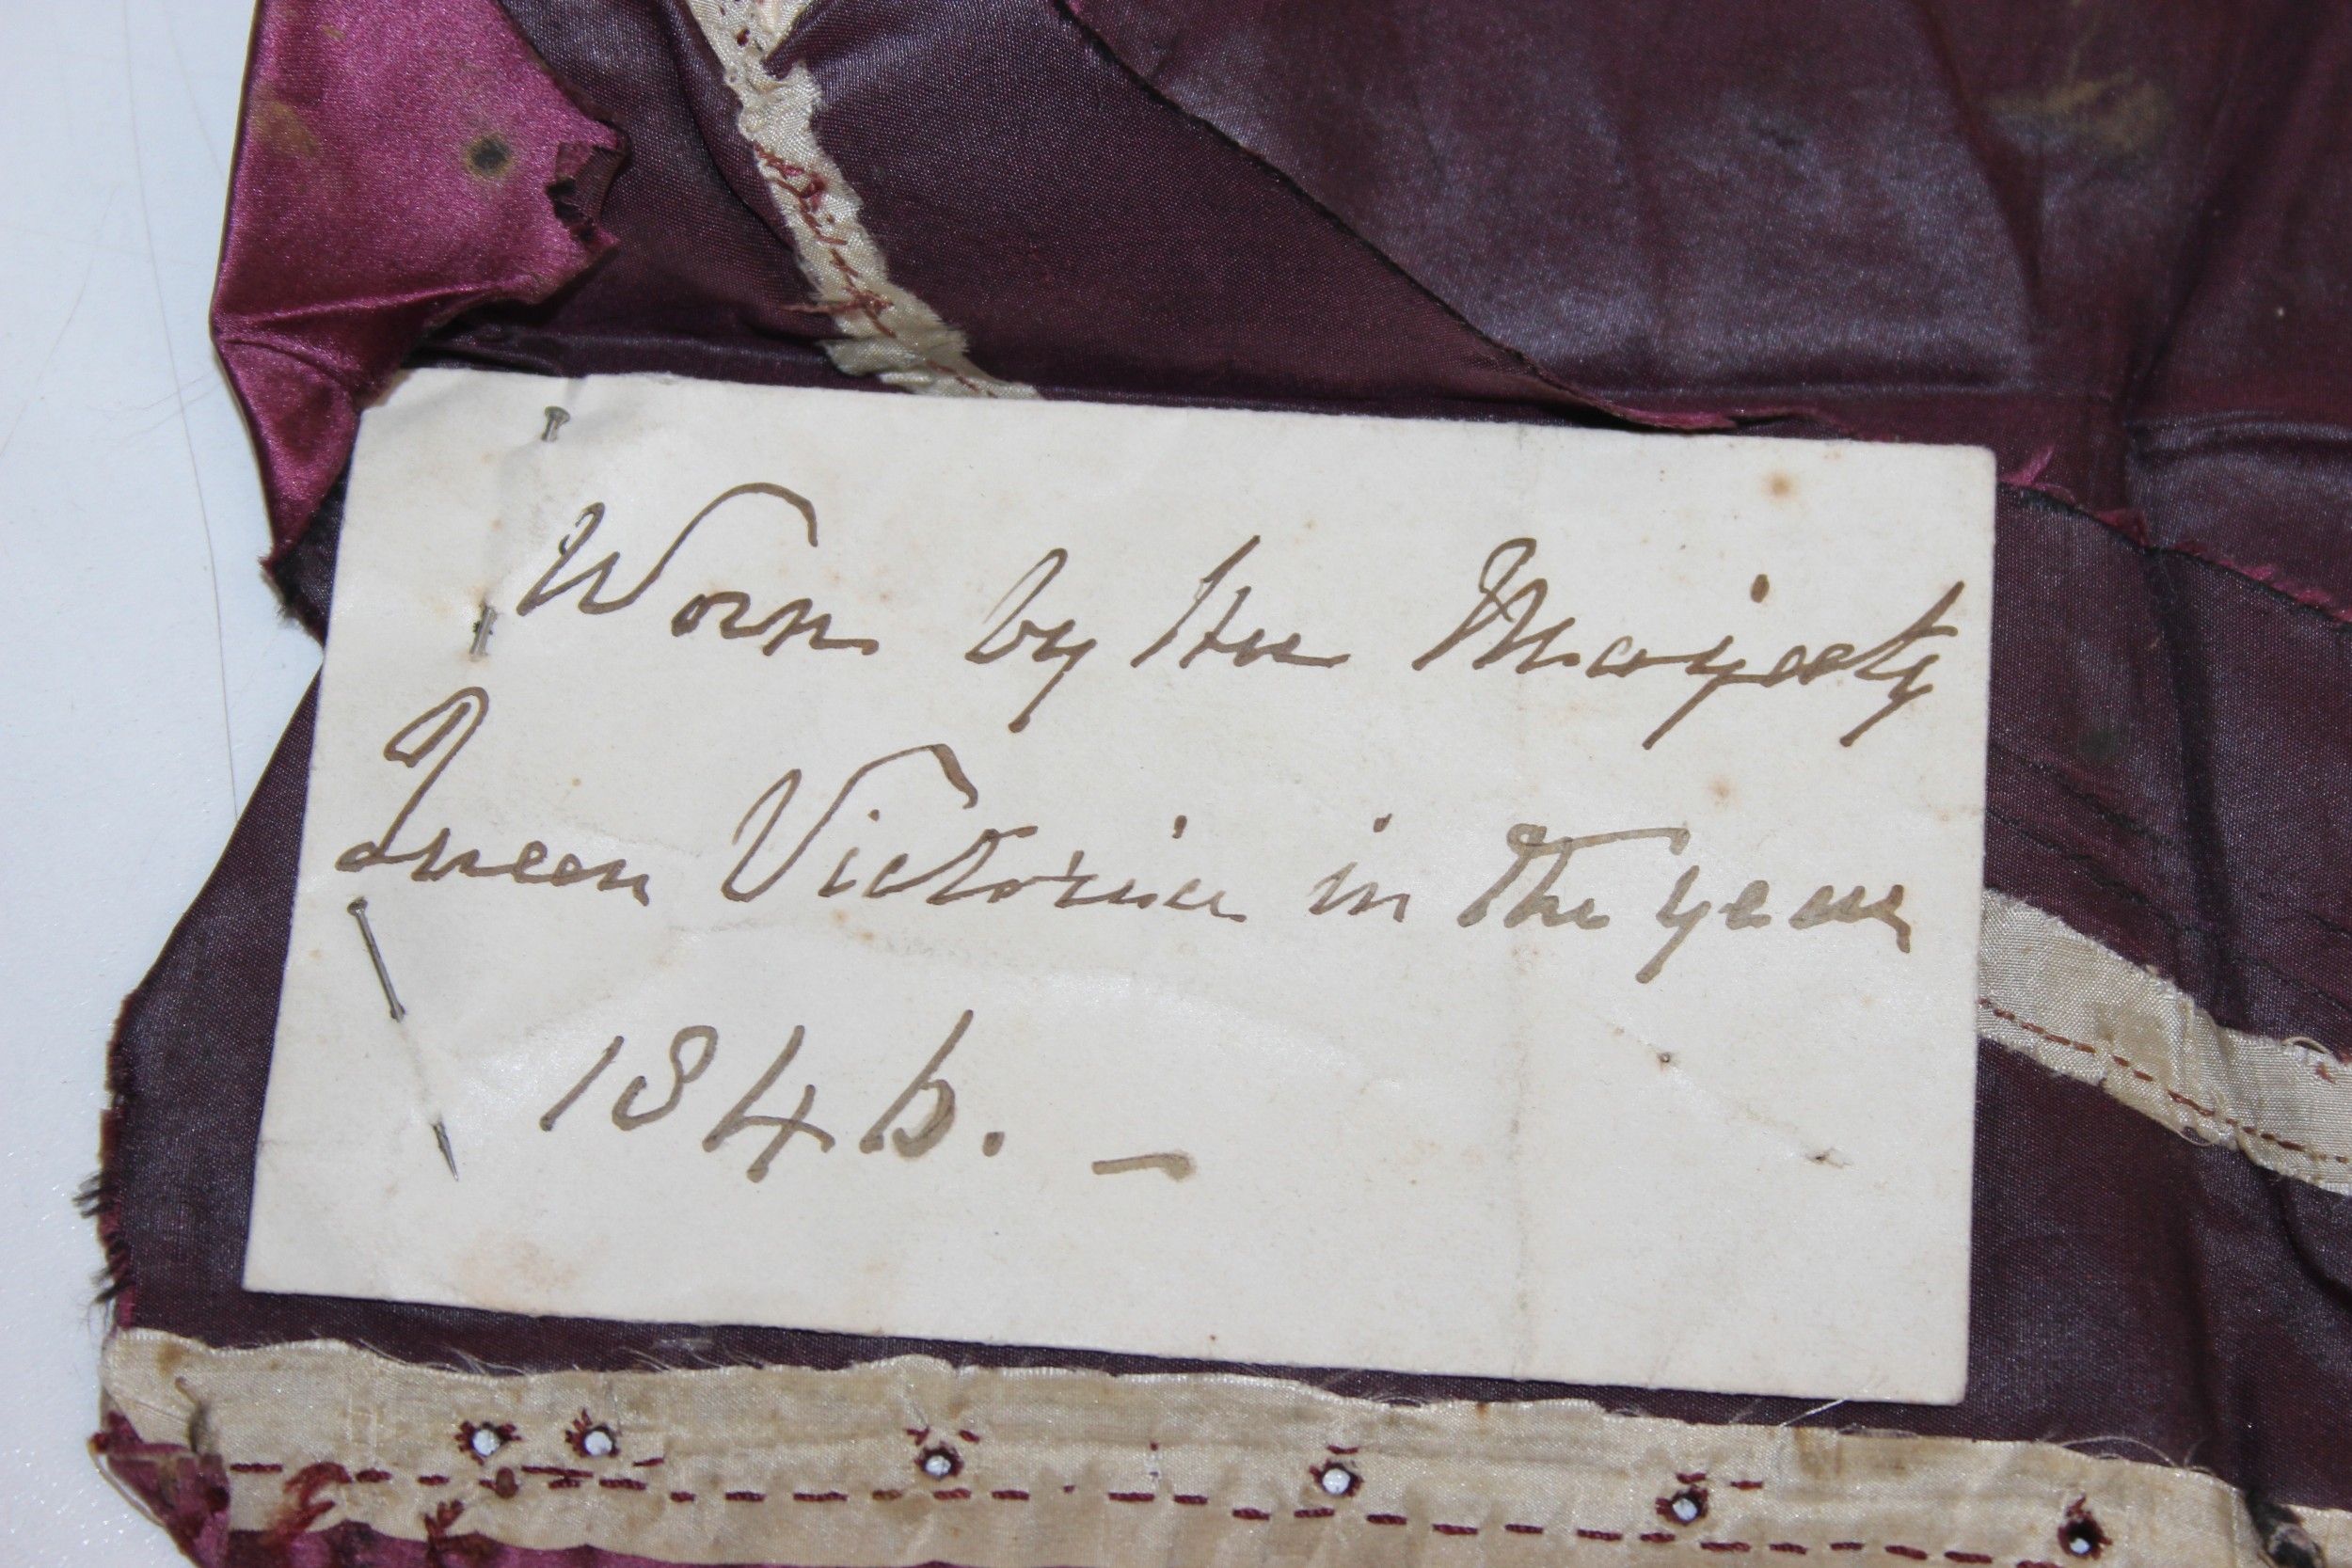 Worn by Her Majesty
Queen Victoria in the year
1846. _